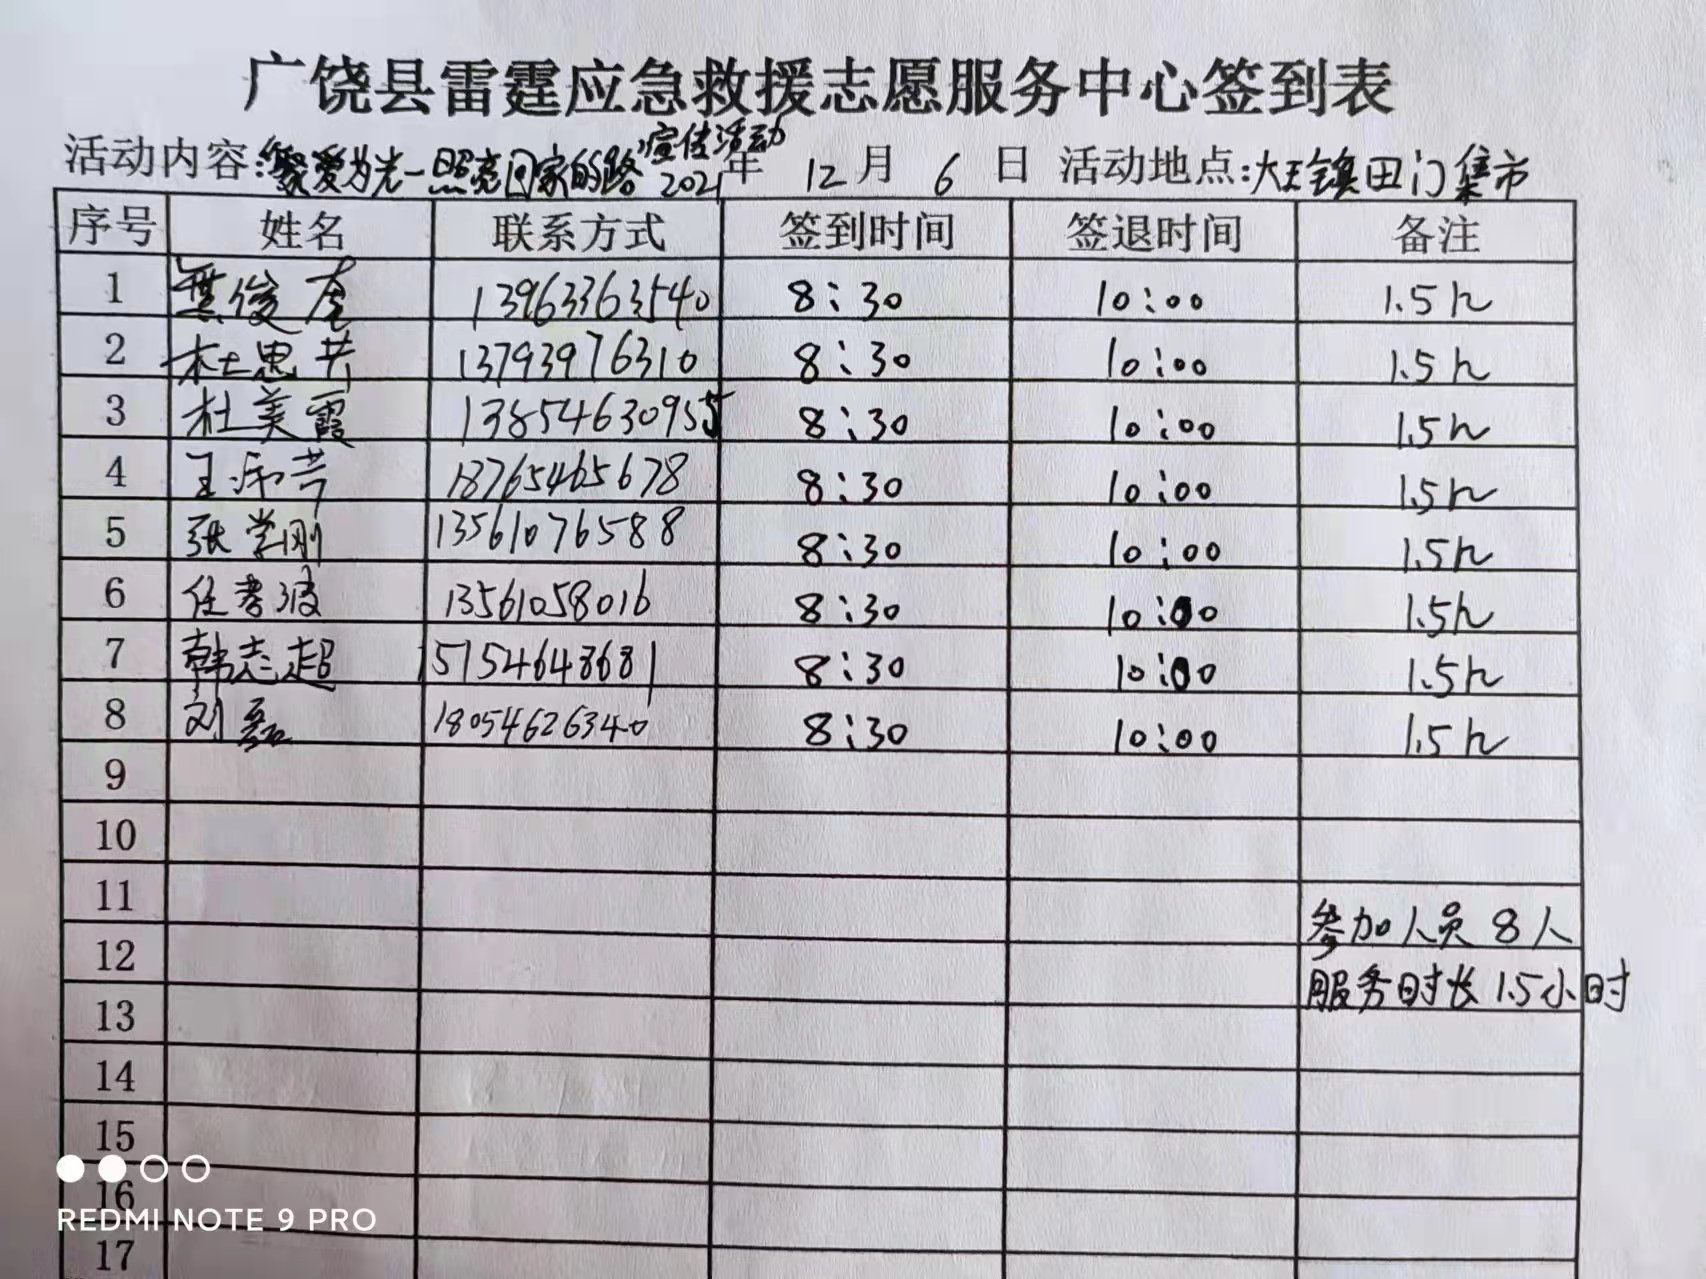 广饶县雷霆应急救援志愿服务中心签到表
活动内容:"聚爱为光一照亮回家的路"宣传活动 2021年 12月 6日 活动地点:大王镇田门集市
序号 姓名 联系方式 签到时间 签退时间 备注
1 俊 13963363540 8:30 10:00 1.5h
2 杜思 13793976310 8:30 10:00 1.5h
3 杜美霞 13854630955 8:30 10:00 1.5h
4 王 18765465678 8:30 10:00 1.5h
5 张学刚 13561076588 8:30 10:00 1.5h
6 任孝波 13561058016 8:30 10:00 1.5h
7 韩志超 15154648681 8:30 10:00 1.5h
8 刘磊 18054626340 8:30 10:00 1.5h
9
10
11 参加人员8人
12 服务时长1.5小时
13
14
15
16
REDMI NOTE 9 PRO
17